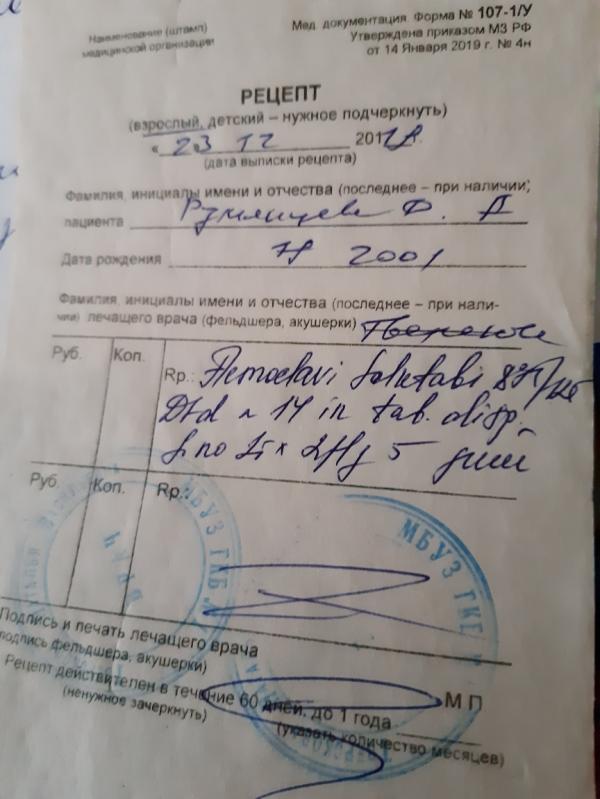 Наименование (штамп)
медицинской организации
Мед. документация. Форма № 107-1/У
Утверждена приказом МЗ РФ
от 14 Января 2019 г. № 4н
РЕЦЕПТ
(взрослый, детский – нужное подчеркнуть)
« 23 12 201 г.
(дата выписки рецепта)
Фамилия, инициалы имени и отчества (последнее – при наличии)
пациента
Дата рождения 2001
Фамилия, инициалы имени и отчества (последнее – при нали-
чии) лечащего врача (фельдшера, акушерки)
Руб. Коп. Rp.: Flemoclavi Solutabi 875/125
Dtd N 14 in tab. disp.
S по 1т x 2 5 дней
Руб. Коп. Rp.:
МБУЗ
МБУЗ
Подпись и печать лечащего врача
подпись фельдшера, акушерки)
М П
Рецепт действителен в течение 60 дней, до 1 года
(ненужное зачеркнуть)
(указать количество месяцев)